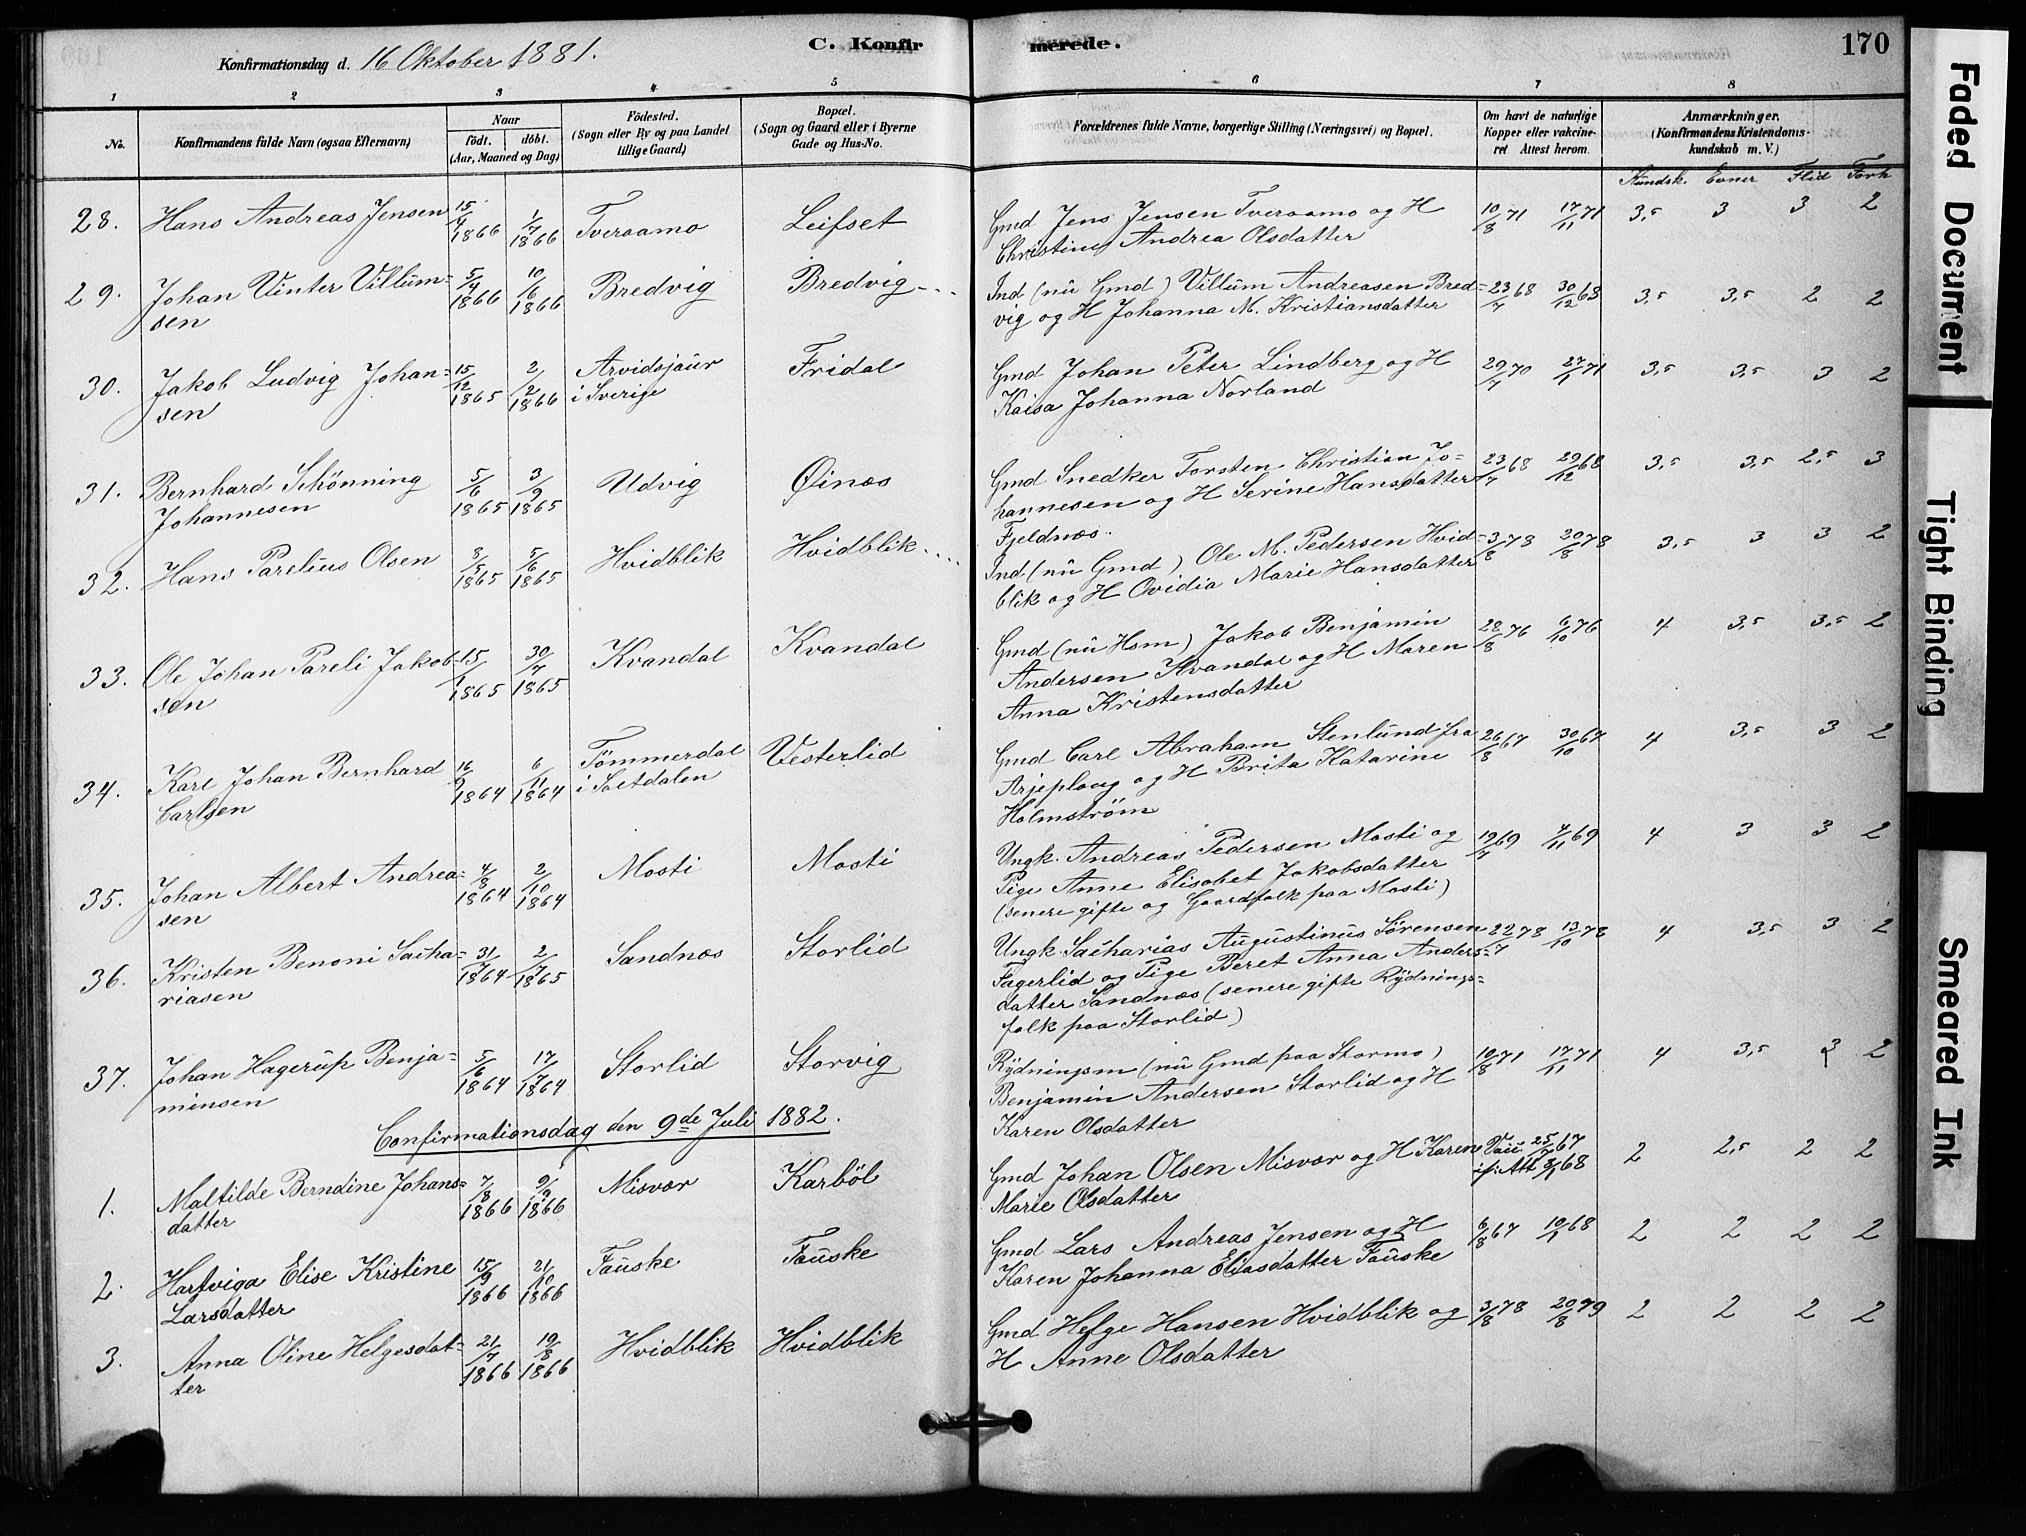 Konfirmationsdag d. 16 Oktober 1881. C. Konfirmerede. 170
1 2 3 4 5 6 7 8
No. Konfirmandens fulde Navn (ogsaa Efternavn) Naar født. døbt. (Aar, Maaned og Dag) Fødested. (Sogn eller By og paa Landet tillige Gaard) Bopæl. (Sogn og Gaard eller i Byerne Gade og Hus-No. Forældrenes fulde Navne, borgerlige Stilling (Næringsvei) og Bopæl. Om havt de naturlige Kopper eller vakcineret Attest herom. Anmærkninger. (Konfirmandens Kristendomskundskab m. V.)
Kundsk. Evner Flid Forh
28. Hans Andreas Jensen 15/6 1866 1/7 1866 Tveraamo Leifset Gmd Jens Jensen Tveraamo og H 10/8 71 17/11 71 3,5 3 3 2
Christine Andrea Olsdatter
29. Johan Vinter Villum- 5/4 1866 10/6 1866 Bredvig Bredvig Ind (nu Gmd) Villum Andreasen Bred- 23/7 68 30/12 68 3,5 3,5 2 2
sen vig og H Johanna M. Kristiansdatter
30. Jakob Ludvig Johan- 15/12 1865 2/2 1866 Arvidsjaur Fridal Gmd Johan Peter Lindberg og H 29/7 70 27/1 71 3,5 3,5 3 2
sen i Sverige Kaisa Johanna Norland
31. Bernhard Schönning 5/6 1865 3/9 1865 Udvig Øinæs Gmd Snedker Torsten Christian Jo- 23/7 68 29/12 68 3,5 3,5 2,5 3
Johannesen hannesen og H Serine Hansdatter
Fjeldnæs.
32. Hans Parelius Olsen 3/5 1865 5/6 1865 Hvidblik Hvidblik Ind (nu Gmd) Ole M. Pedersen Hvid- 3/8 78 20/8 78 3,5 3 3 2
blik og H Ovidia Marie Hansdatter
33. Ole Johan Pareli Jakob- 15/1 1865 30/7 1865 Kvandal Kvandal Gmd (nu Hsm) Jakob Benjamin 28/8 76 6/10 76 4 3,5 3,5 2
sen Andersen Kvandal og H Maren
Anna Kristensdatter
34. Karl Johan Bernhard 16/9 1864 6/11 1864 Tömmerdal Vesterlid Gmd Carl Abraham Stenlund fra 26/8 67 30/10 67 4 3,5 3 2
Carlsen i Saltdalen Arjeploug og H Brita Katarine
Holmström
35. Johan Albert Andrea- 4/8 1864 2/10 1864 Mosti Mosti Ungk. Andreas Pedersen Mosti og 19/7 69 4/11 69 4 3 3 2
sen Pige Anne Elisabet Jakobsdatter
(senere gifte og Gaardfolk paa Mosti)
36. Kristen Benoni Sacha- 31/7 1864 2/7 1865 Sandnæs Storlid Ungk. Sacharias Augustinus Sørensen 22/7 78 13/10 78 4 3,5 3 2
riasen Fagerlid og Pige Beret Anna Anders-
datter Sandnæs (senere gifte Rydnings-
folk paa Storlid)
37. Johan Hagerup Benja- 5/6 1864 17/7 1864 Storlid Storvig Rydningsm (nu Gmd paa Stormo) 10/8 71 17/11 71 4 3,5 3 2
minsen Benjamin Andersen Storlid og H
Karen Olsdatter
Confirmationsdag den 9de Juli 1882.
1. Maltilde Berndine Johans- 7/8 1866 9/9 1866 Misvær Karböl Gmd Johan Olsen Misvær og H Karen Vac 25/7 67 2 2,5 2 2
datter Marie Olsdatter if. Att 8/1 68
2. Hartviga Elise Kristine 15/9 1866 21/10 1866 Fauske Fauske Gmd Lars Andreas Jensen og H 6/8 67 10/1 68 2 2 2 2
Larsdatter Karen Johanna Eliasdatter Fauske
3. Anna Oline Helgesdat- 21/7 1866 19/8 1866 Hvidblik Hvidblik Gmd Helge Hansen Hvidblik og 3/8 78 20/8 79 2 2 2 2
ter H Anne Olsdatter
Faded Document
Tight Binding
Smeared Ink